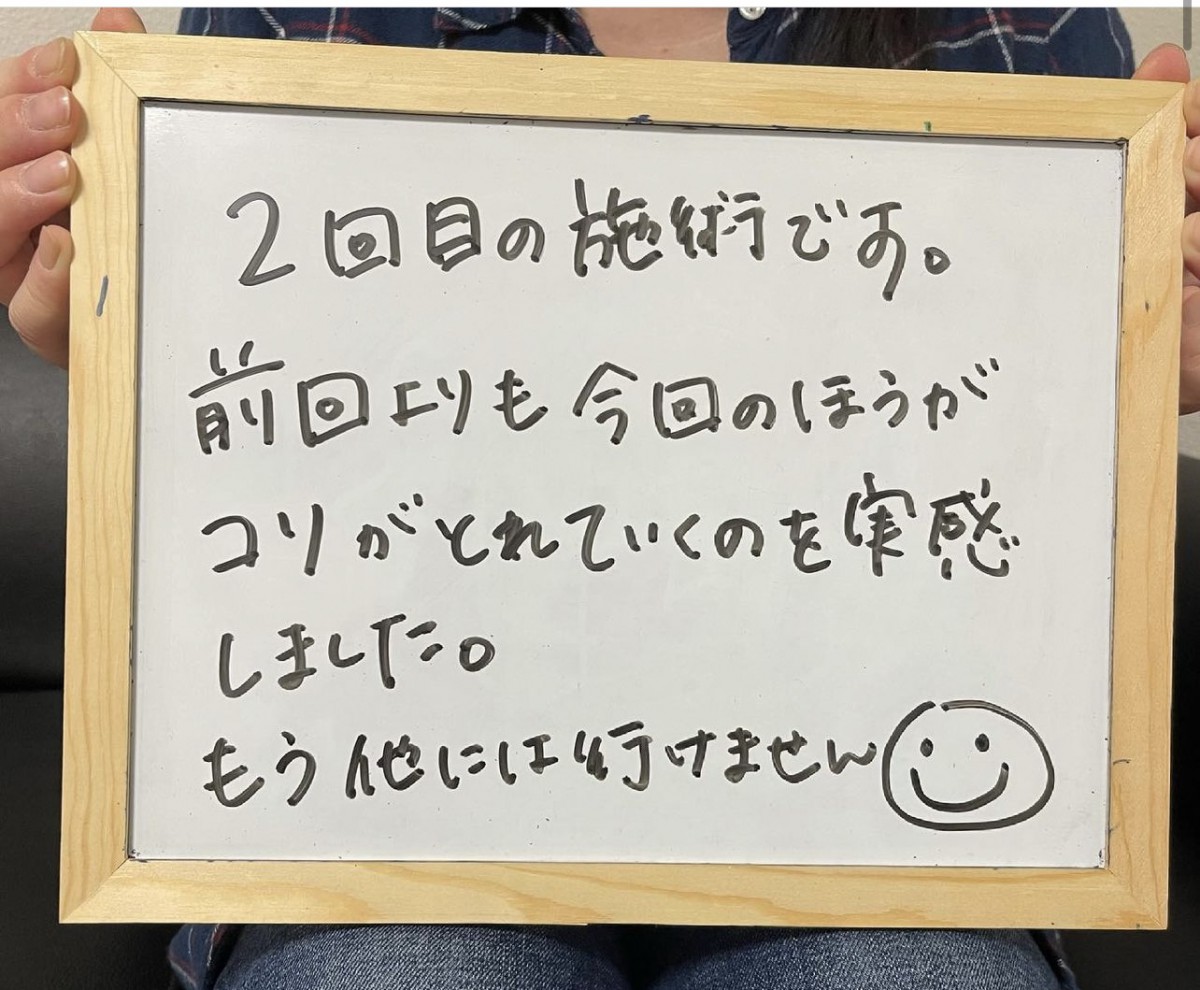 2回目の施術です。
前回よりも今回のほうが
コリがとれていくのを実感
しました。
もう他には行けません